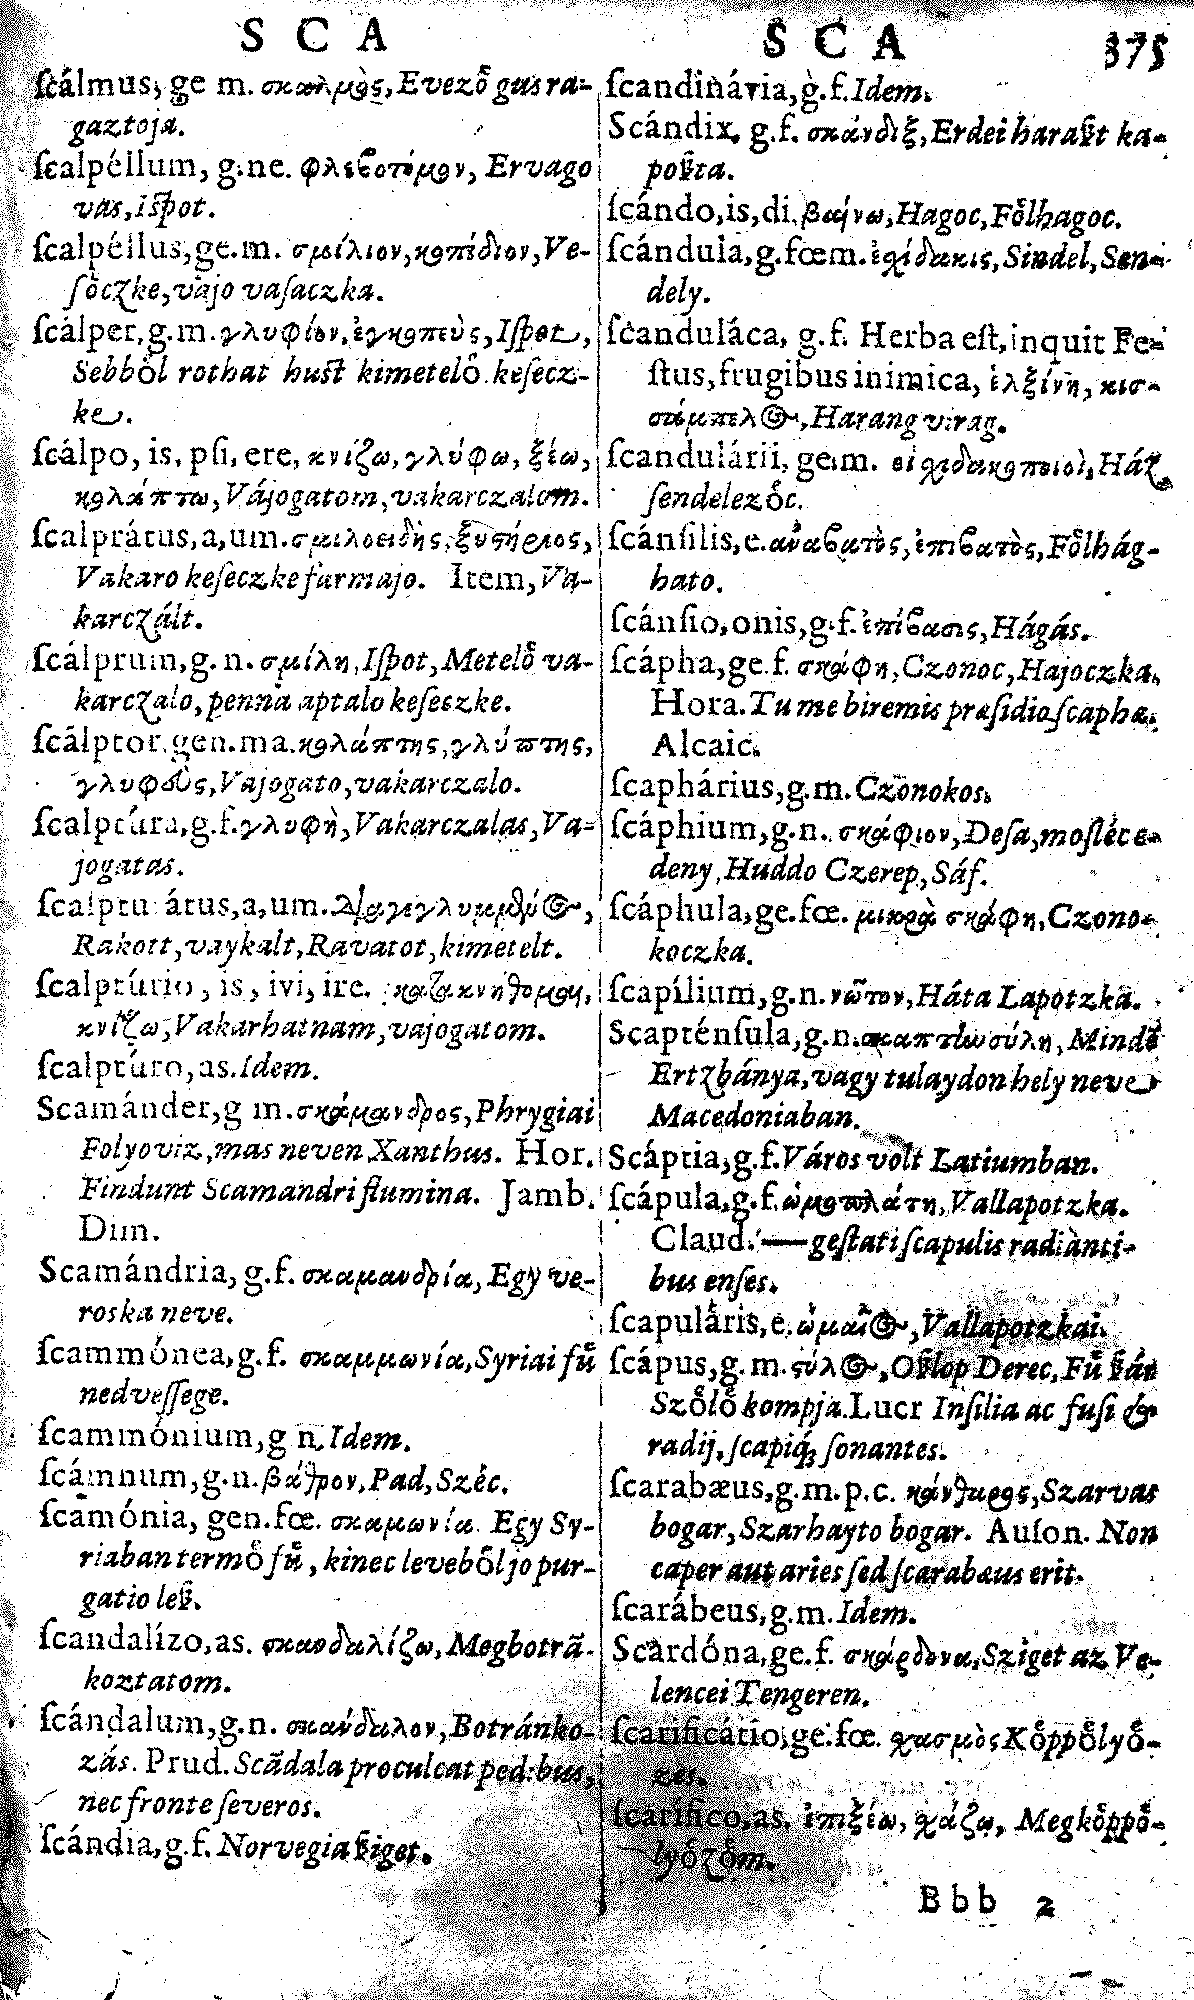 S C A
ſcálmus, ge m. σκαλμὸς, Evezoͤ gus ra-
gaztoja.
ſcalpéllum, g. ne. φλεβοτόμον, Ervago
vas, iſpot.
ſcalpéllus, ge. m. σμίλιον, κοπίδιον, Ve-
ſoͤczke, vajo vaſaczka.
ſcálper, g. m. γλυφίον, ἐγκοπεὺς, Iſpot,
Sebboͤl rothat huſt kimeteloͤ keſecz-
ke.
ſcálpo, is, pſi, ere, κνίζω, γλύφω, ξέω,
κολάπτω, Vájogatom, vakarczalom.
ſcalprátus, a, um. σμιλοειδὴς, ξυστήριος,
Vakaro keſeczke formajo. Item, Va-
karczált.
ſcálprum, g. n. σμίλη, Iſpot, Meteloͤ va-
karczalo, penna aptalo keſeczke.
ſcálptor. gen. ma. κολάπτης, γλύπτης,
γλυφοὺς, Vajogato, vakarczalo.
ſcalptúra, g. f. γλυφὴ, Vakarczalas, Va-
jogatas.
ſcalpturátus, a, um.
Rakott, vaykalt, Ravatot, kimetelt.
ſcalptúrio, is, ivi, ire. κατακνήθομαι,
κνίζω, Vakarhatnam, vajogatom.
ſcalptúro, as. Idem.
Scamánder, g m. σκάμανδρος, Phrygiai
Folyoviz, mas neven Xanthus. Hor.
Findunt Scamandri flumina. Jamb.
Dim.
Scamándria, g. f. σκαμανδρία, Egy ve-
roska neve.
ſcammónea, g. f. σκαμμωνία, Syriai fuͤ
nedveſſege.
ſcammónium, g n. Idem.
ſcámnum, g. n. βάθρον, Pad, Széc.
ſcamónia, gen. fœ. σκαμωνία. Egy Sy-
riaban termoͤ fuͤ, kinec leveboͤl jo pur-
gatio leſz.
ſcandalízo, as. σκανδαλίζω, Megbotrā-
koztatom.
ſcándalum, g. n. σκάνδαλον, Botránko-
zás. Prud. Scādala proculcat pedibus,
nec fronte ſeveros.
ſcándia, g. f. Norvegia ſziget.
S C A 375
ſcandinávia, g. f. Idem.
Scándix, g. f. σκάνδιξ, Erdei haraſzt ka-
poſzta.
ſcándo, is, di. βαίνω, Hagoc, Foͤlhagoc.
ſcándula, g. fœm. σχίδακις, Sindel, Sen-
dely.
ſcanduláca, g. f. Herba eſt, inquit Fe-
ſtus, frugibus inimica, ἑλξίνη, κισ-
σάμπελος, Harang virag.
ſcandulárii, ge. m. οἱ χιδακοποιοὶ, Ház
ſendelezoͤc.
ſcánſilis, e. ἀναβατὸς, ἐπιβατὸς, Foͤlhág-
hato.
ſcánſio, onis, g. f. ἐπίβασις, Hágás.
ſcápha, ge. f. σκάφη, Czonoc, Hajoczka.
Hora. Tu me biremis præſidio ſcaphæ.
Alcaic.
ſcaphárius, g. m. Czonokos.
ſcáphium, g. n. σκάφιον, Deſa, moſléc e-
deny, Huddo Czerep, Sáf.
ſcáphula, ge. fœ. μικρὰ σκάφη, Czono-
koczka.
ſcapílium, g. n. νῶτον, Háta Lapotzka.
Scapténſula, g. n. σκαπτὴνσύλη, Mindē
Ertzbánya, vagy tulaydon hely neve
Macedoniaban.
Scáptia, g. f. Város volt Latiumban.
ſcápula, g. f. ὠμοπλάτη, Vallapotzka.
Claud. — geſtati ſcapulis radianti-
bus enſes.
ſcapuláris, e. ὠμαῖος, Vallapotzkai.
ſcápus, g. m. στύλος, Oſzlop Derec, Fuͤ ſzár
Szoͤloͤ kompja. Lucr Inſilia ac fuſi &
radij, ſcapiq; ſonantes.
ſcarabæus, g. m. p. c. κάνθαρος, Szarvas
bogar, Szarhayto bogar. Auſon. Non
caper aut aries ſed ſcarabæus erit.
ſcarábeus, g. m. Idem.
Scardóna, ge. f. σκάρδονα, Sziget az Ve-
lencei Tengeren.
ſcarificátio, ge. fœ. χασμὸς Koͤppoͤlyoͤ-
zes.
ſcarífico, as. ἐπιξέω, χάζω, Megkoͤppoͤ-
lyoͤzoͤm.
Bbb 2